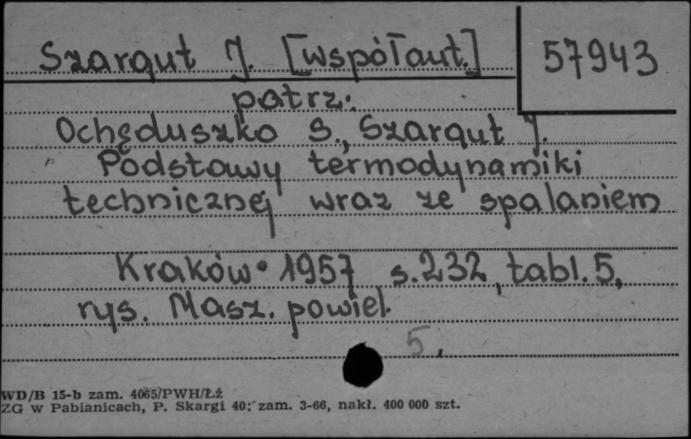 Szargut J. [współaut.] 57943
patrz:
Ochęduszko S., Szargut J.
Podstawy termodynamiki
technicznej wraz ze spalaniem
Kraków 1957 s. 232, tabl. 5,
rys. Masz. powiel.
5.
WD/B 15-b zam. 4065/PWH/Łź
ZG w Pabianicach, P. Skargi 40; zam. 3-66, nakł. 400 000 szt.